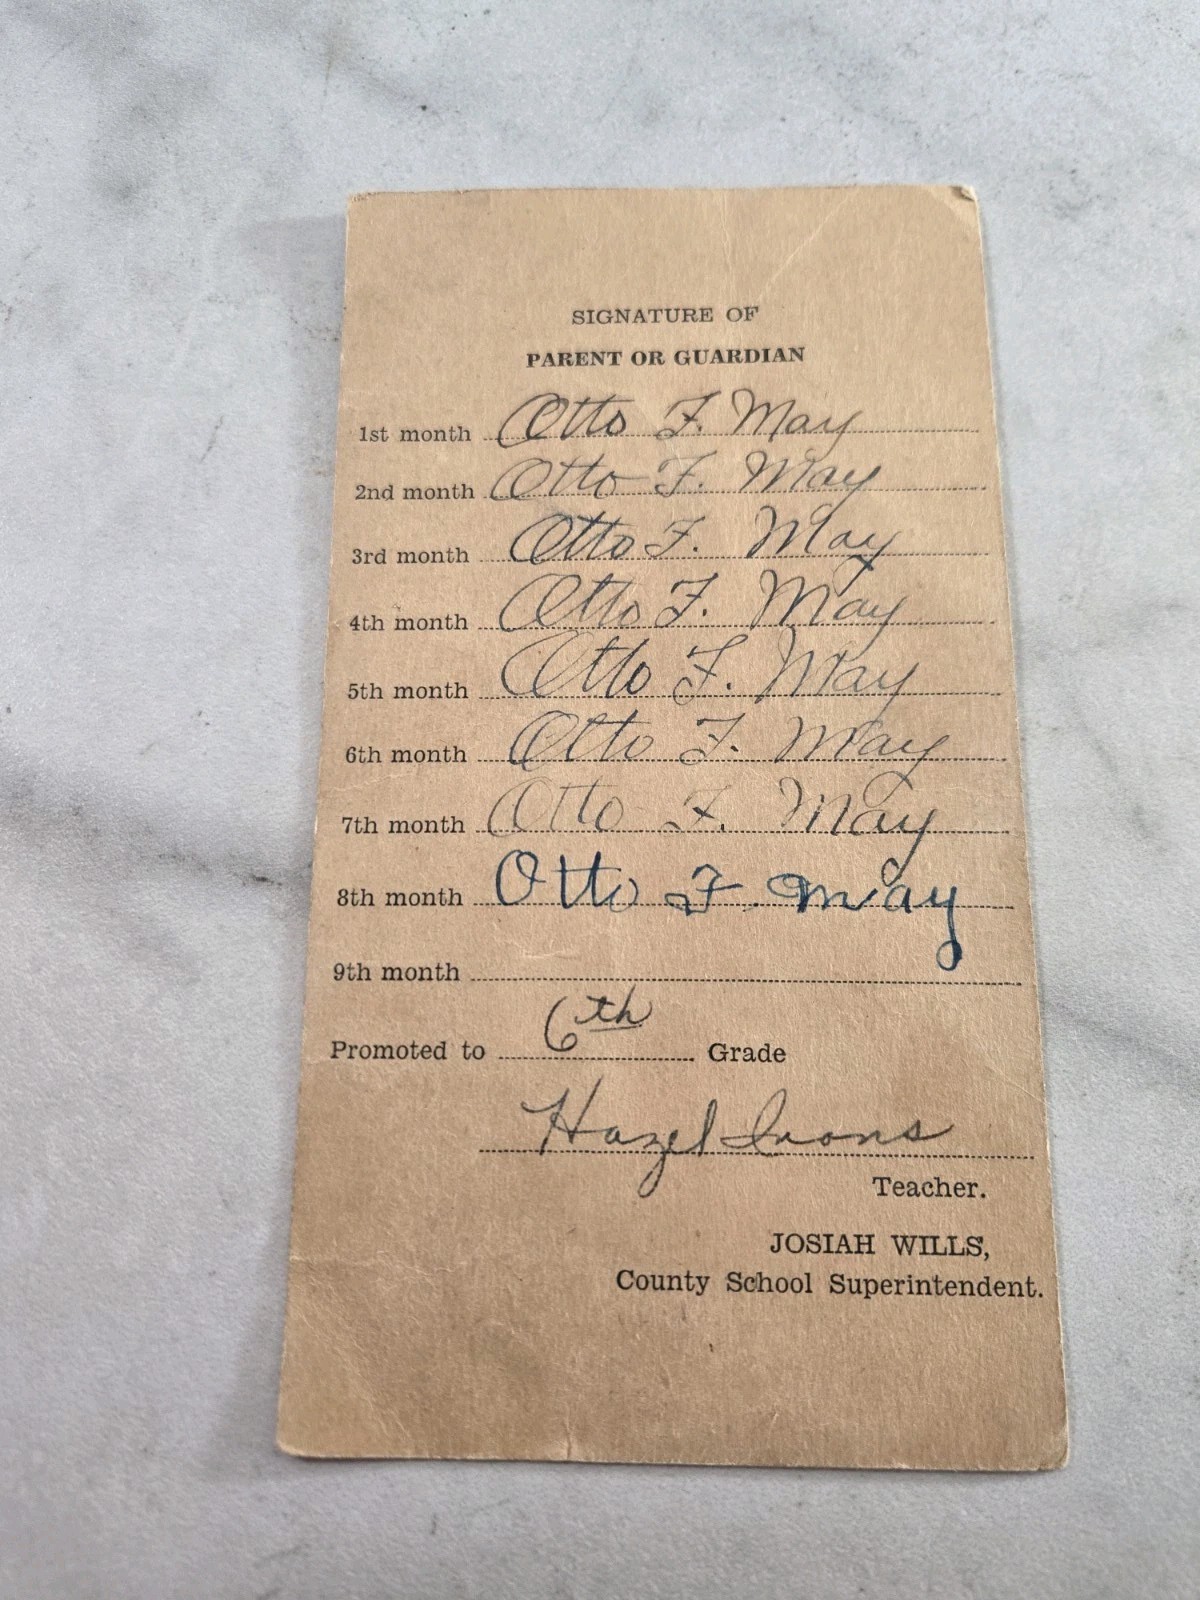 SIGNATURE OF
PARENT OR GUARDIAN
1st month Otto F. May
2nd month Otto F. May
3rd month Otto F. May
4th month Otto F. May
5th month Otto F. May
6th month Otto F. May
7th month Otto F. May
8th month Otto F. May
9th month
Promoted to 6th Grade
Hazel Irons
Teacher.
JOSIAH WILLS,
County School Superintendent.